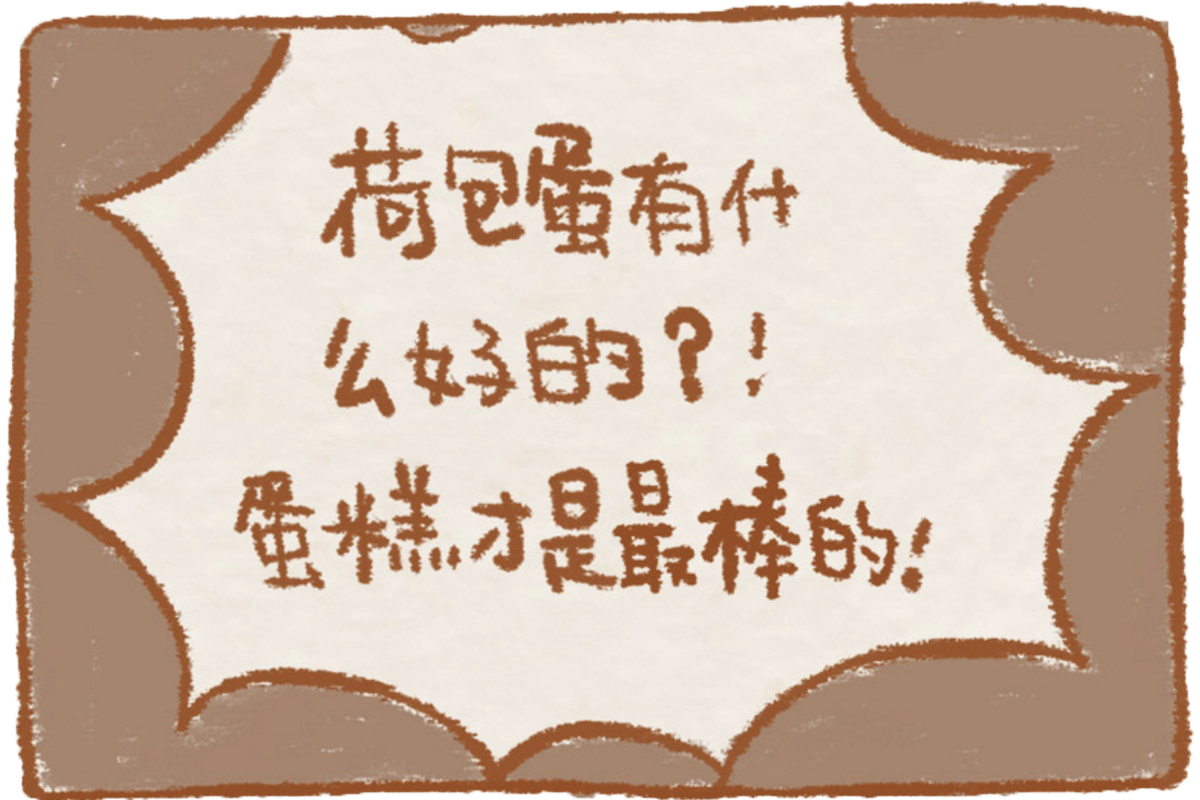 荷包蛋有什
么好的?!
蛋糕才是最棒的!